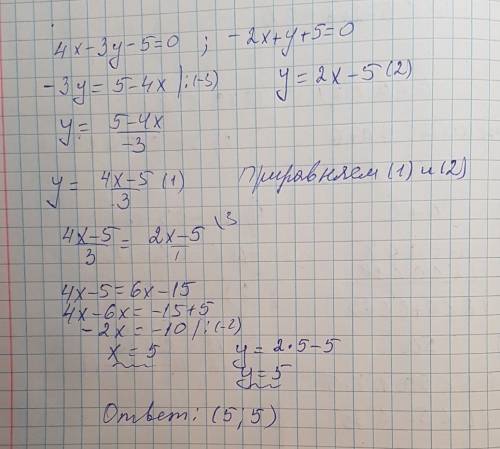 4x-3y-5=0 ; -2x+y+5=0
-3y = 5-4x |:(-3) y = 2x-5 (2)
y = \frac{5-4x}{-3}
y = \frac{4x-5}{3} (1) Приравняем (1) и (2)
\frac{4x-5}{3} = \frac{2x-5}{1} \3
4x-5=6x-15
4x-6x=-15+5
-2x = -10 |:(-2)
x = 5 y = 2·5-5
y=5
Ответ: (5; 5)